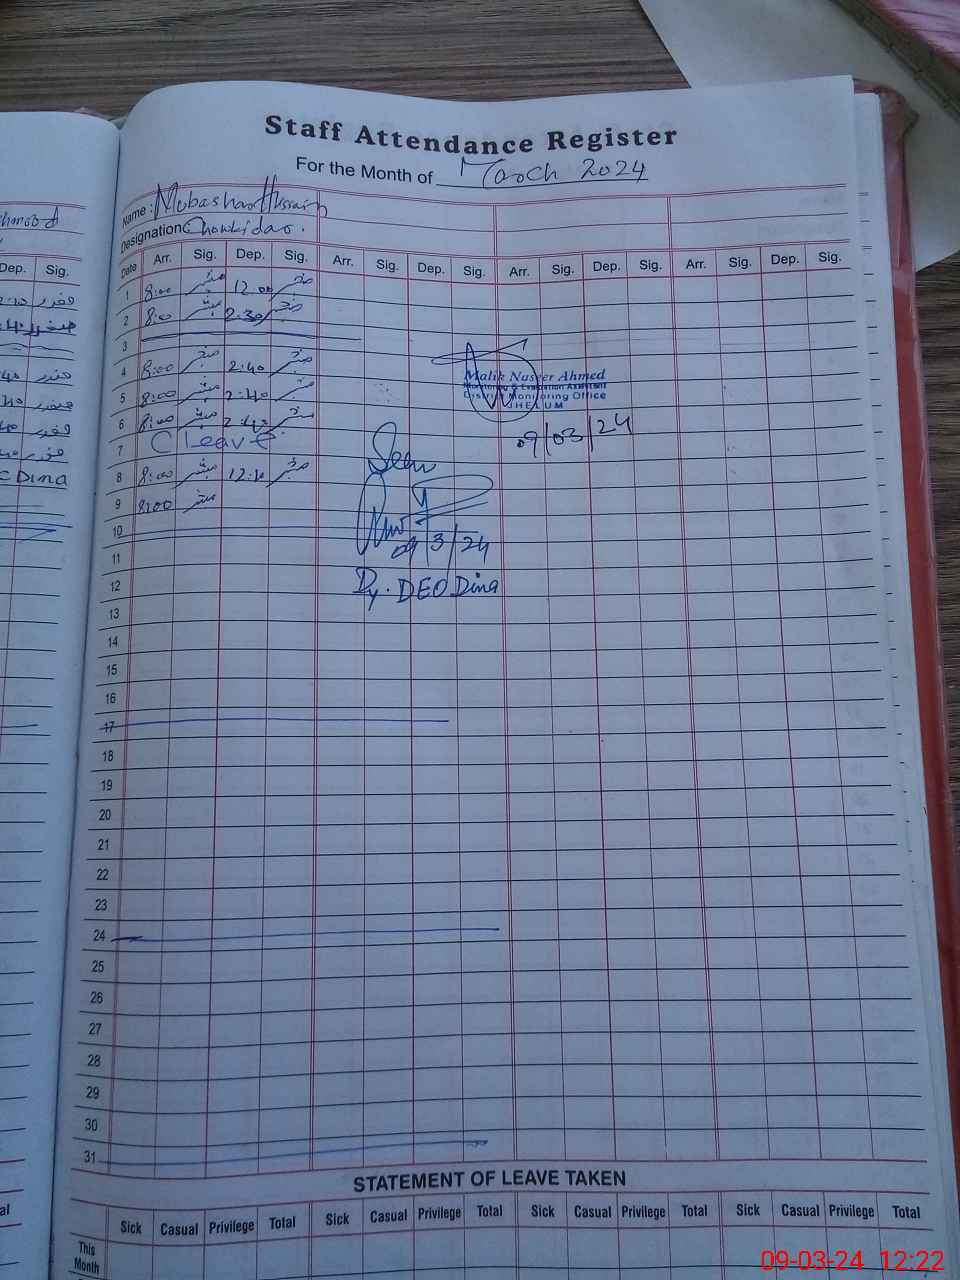 Staff Attendance Register
For the Month of March 2024
Name : Mubashar Hussain
Designation Chowkidar.
Date Arr. Sig. Dep. Sig. Arr. Sig. Dep. Sig. Arr. Sig. Dep. Sig. Arr. Sig. Dep. Sig.
Dep. Sig.
1 8:00 12:00
2 8:00 2:30
3
4 8:00 2:40
5 8:00 2:40
6 8:00 2:40
7 C Leave
8 8:00 12:10
9 8:00
10
11
12
13
14
15
16
17
18
19
20
21
22
23
24
25
26
27
28
29
30
31
Malik Naseer Ahmed
Monitoring & Evaluation Assistant
District Monitoring Office
JHELUM
09/03/24
Seen
09/3/24
Dy. DEO Dina
Dina
STATEMENT OF LEAVE TAKEN
Sick Casual Privilege Total Sick Casual Privilege Total Sick Casual Privilege Total Sick Casual Privilege Total
This
Month
09-03-24 12:22